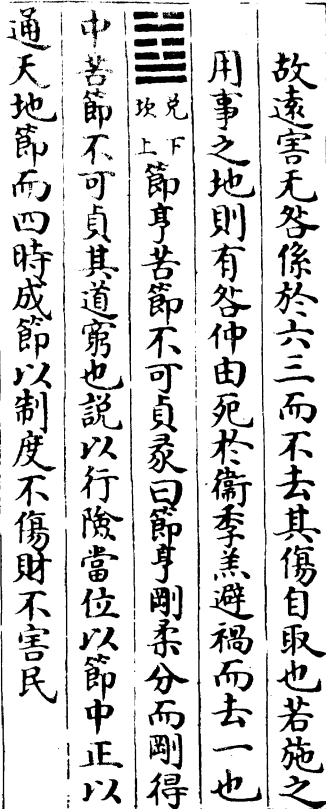 故遠害无咎係於六三而不去其傷自取也若施之
用事之地則有咎仲由死於衞季羔避禍而去一也
䷻兑下坎上節亨苦節不可貞彖曰節亨剛柔分而剛得
中苦節不可貞其道窮也説以行險當位以節中正以
通天地節而四時成節以制度不傷財不害民